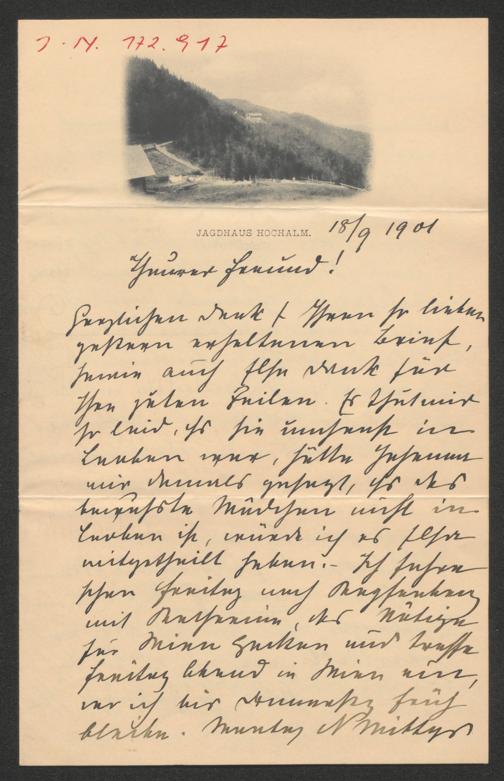 J. N. 172.917
JAGDHAUS HOCHALM.
18/9 1901
Theurer Freund!
Herzlichen Dank f Ihren so lieben
gestern erhaltenen Brief,
sowie auch Ilse Dank für
Ihre guten Zeilen. Es thut mir
so leid, ds sie umsonst in
Leoben war, hätte
mir damals gesagt, ds das
bewußte Mädchen nicht in
Leoben ist, würde ich es Ilse
mitgetheilt haben. – Ich fahre
schon Freitag nach
mit Katharina, das Nötige
für Wien packen und treffe
Freitag Abend in Wien ein,
wo ich bis Donnerstag früh
bleibe. Montag N Mittgs